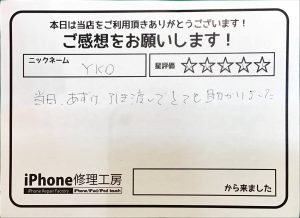 本日は当店をご利用頂きありがとうございます！
ご感想をお願いします！
ニックネーム
YKO
星評価 ☆☆☆☆☆
当日、あずけ 引き渡しでとても助かりました
iPhone修理工房
iPhone Repair Factory
iPhone/iPad/iPod touch
から来ました